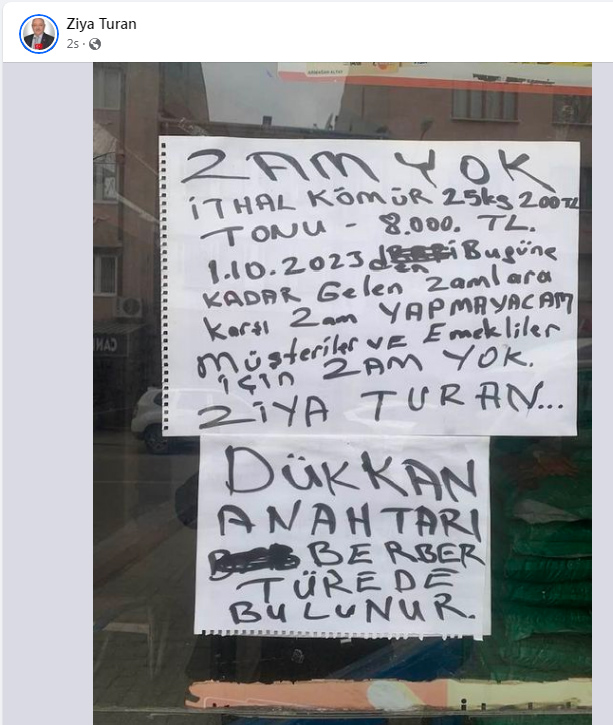 Ziya Turan
2s
ZAM YOK
İTHAL KÖMÜR 25kg 200TL
TONU - 8.000. TL.
1.10.2023 den Bugüne
KADAR Gelen Zamlara
Karşı Zam YAPMAYACAM
Müşteriler VE Emekliler
için ZAM YOK.
ZİYA TURAN...
DÜKKAN
ANAHTARI
BERBER
TÜREDE
BULUNUR.